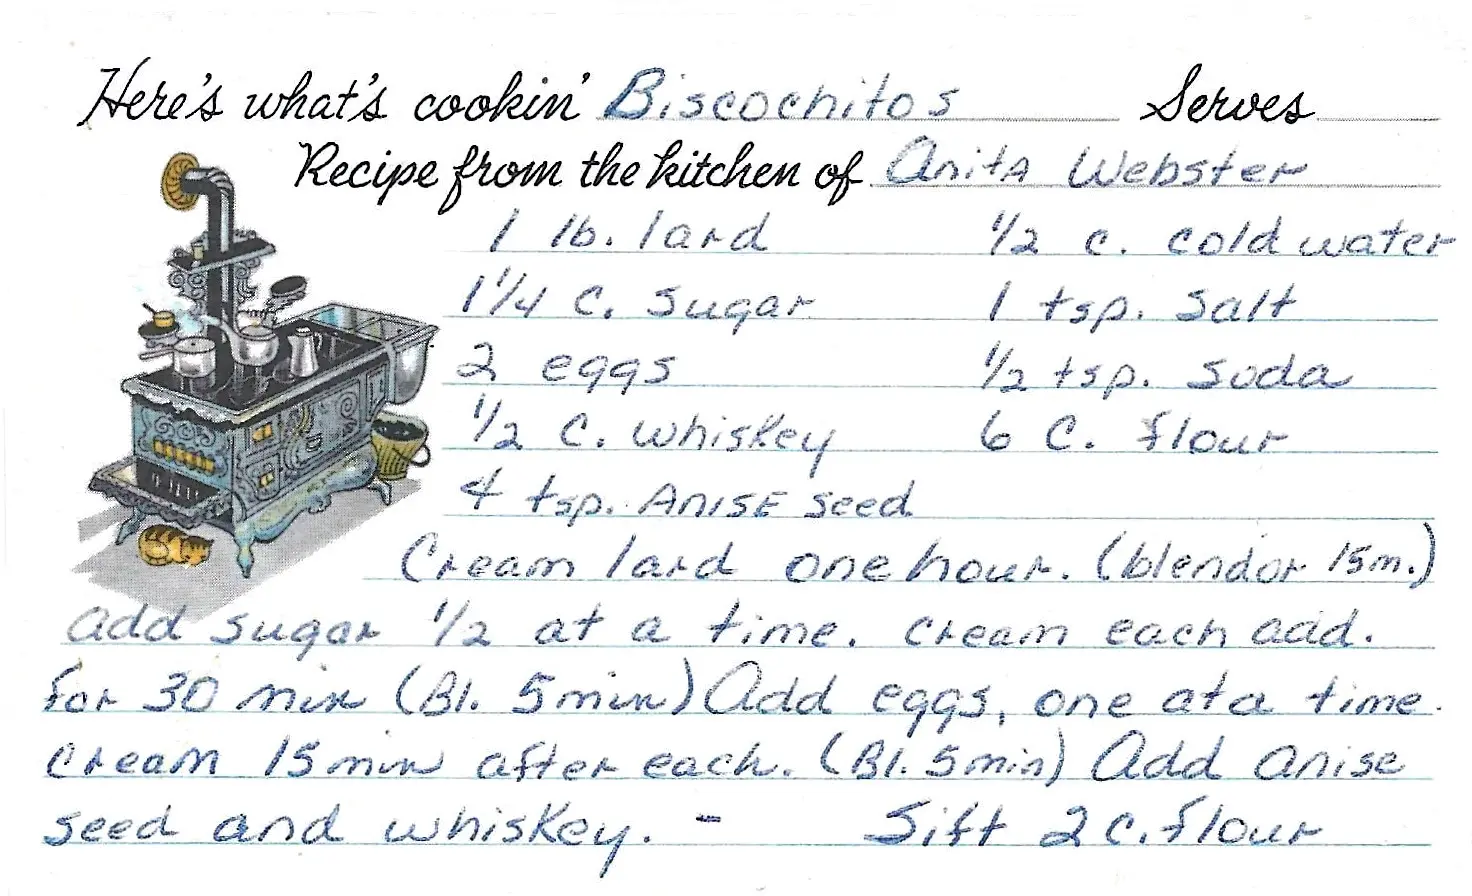 Here's what's cookin' Biscochitos Serves
Recipe from the kitchen of Anita Webster
1 lb. lard ½ c. cold water
1¼ C. sugar 1 tsp. salt
2 eggs ½ tsp. soda
½ C. whiskey 6 C. flour
4 tsp. ANISE seed
Cream lard one hour. (blendor 15m.)
add sugar ½ at a time. cream each add.
for 30 min (Bl. 5 min) Add eggs, one at a time.
cream 15 min after each. (Bl. 5 min) Add anise
seed and whiskey. - Sift 2 C. flour